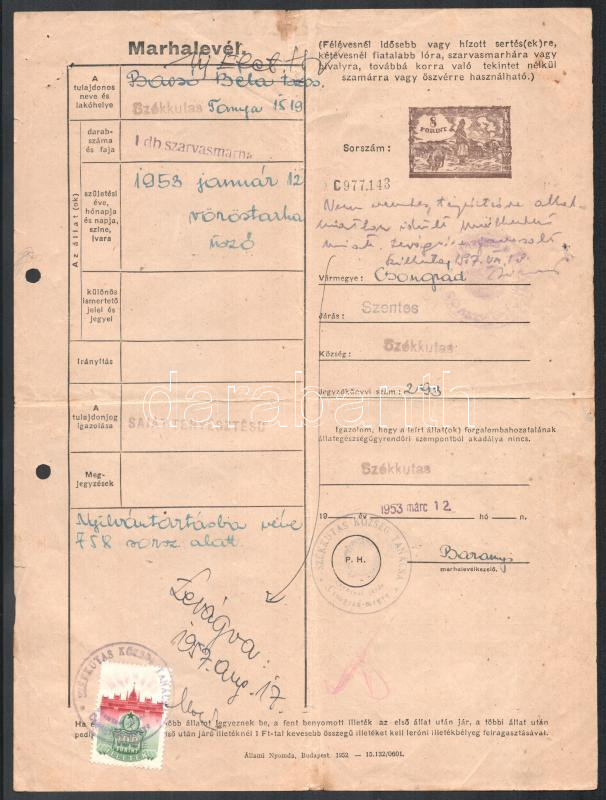 Marhalevél.
Uj Élet
(Félévesnél idősebb vagy hízott sertés(ek)re,
kétévesnél fiatalabb lóra, szarvasmarhára vagy
bivalyra, továbbá korra való tekintet nélkül
szamárra vagy öszvérre használható.)
A
tulajdonos
neve és
lakóhelye
Bacsó Béla
Székkutas Tanya 1519
8
FORINT
Sorszám:
C977.143
darab-
száma
és faja
1 db szarvasmarha
Az állat(ok)
születési
éve,
hónapja
és napja,
színe,
ivara
1953 január 12
vöröstarka
üsző
Nem rendes
miatt
különös
ismertető
jelei és
jegyei
Vármegye: Csongrád
Járás: Szentes
Község: Székkutas
Irányítás
Jegyzőkönyvi szám: 293
A
tulajdonjog
igazolása
SAJÁT TENYÉSZTÉSŰ
Igazolom, hogy a leírt állat(ok) forgalombahozatalának
állategészségügyrendőri szempontból akadálya nincs.
Meg-
jegyzések
Székkutas
19 év 1953 márc 12. hó n.
Nyilvántartásba véve
758 sorsz. alatt.
SZÉKKUTAS KÖZSÉG TANÁCSA
P. H.
Baranyi
marhalevélkezelő.
Levágva
1957. aug. 17.
SZÉKKUTAS KÖZSÉG TANÁCSA
Ha több állatot jegyeznek be, a fent benyomott illeték az első állat után jár, a többi állat után
pedig első után járó illetéknél 1 Ft-tal kevesebb összegű illetéket kell leróni illetékbélyeg felragasztásával.
Állami Nyomda, Budapest. 1952 — 15.132/0601.
darabanth